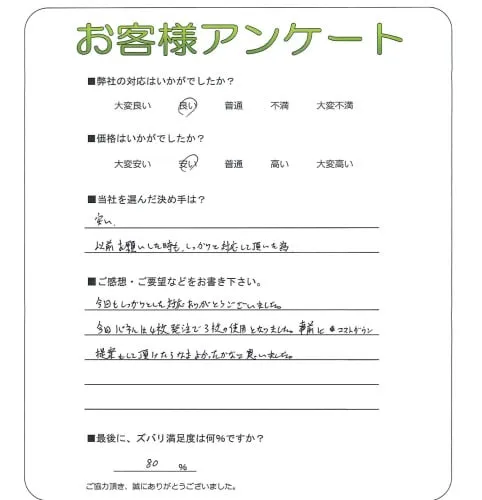 お客様アンケート
■弊社の対応はいかがでしたか?
大変良い 良い 普通 不満 大変不満
■価格はいかがでしたか?
大変安い 安い 普通 高い 大変高い
■当社を選んだ決め手は?
安い、
以前お願いした時も、しっかりと対応して頂いた為
■ご感想・ご要望などをお書き下さい。
今回もしっかりとした対応ありがとうございました。
今回パネルは4枚発注で3枚の使用となりました。事前に コストダウン
提案もして頂けたらなおよかったかなと思いました。
■最後に、ズバリ満足度は何%ですか?
80 %
ご協力頂き、誠にありがとうございました。